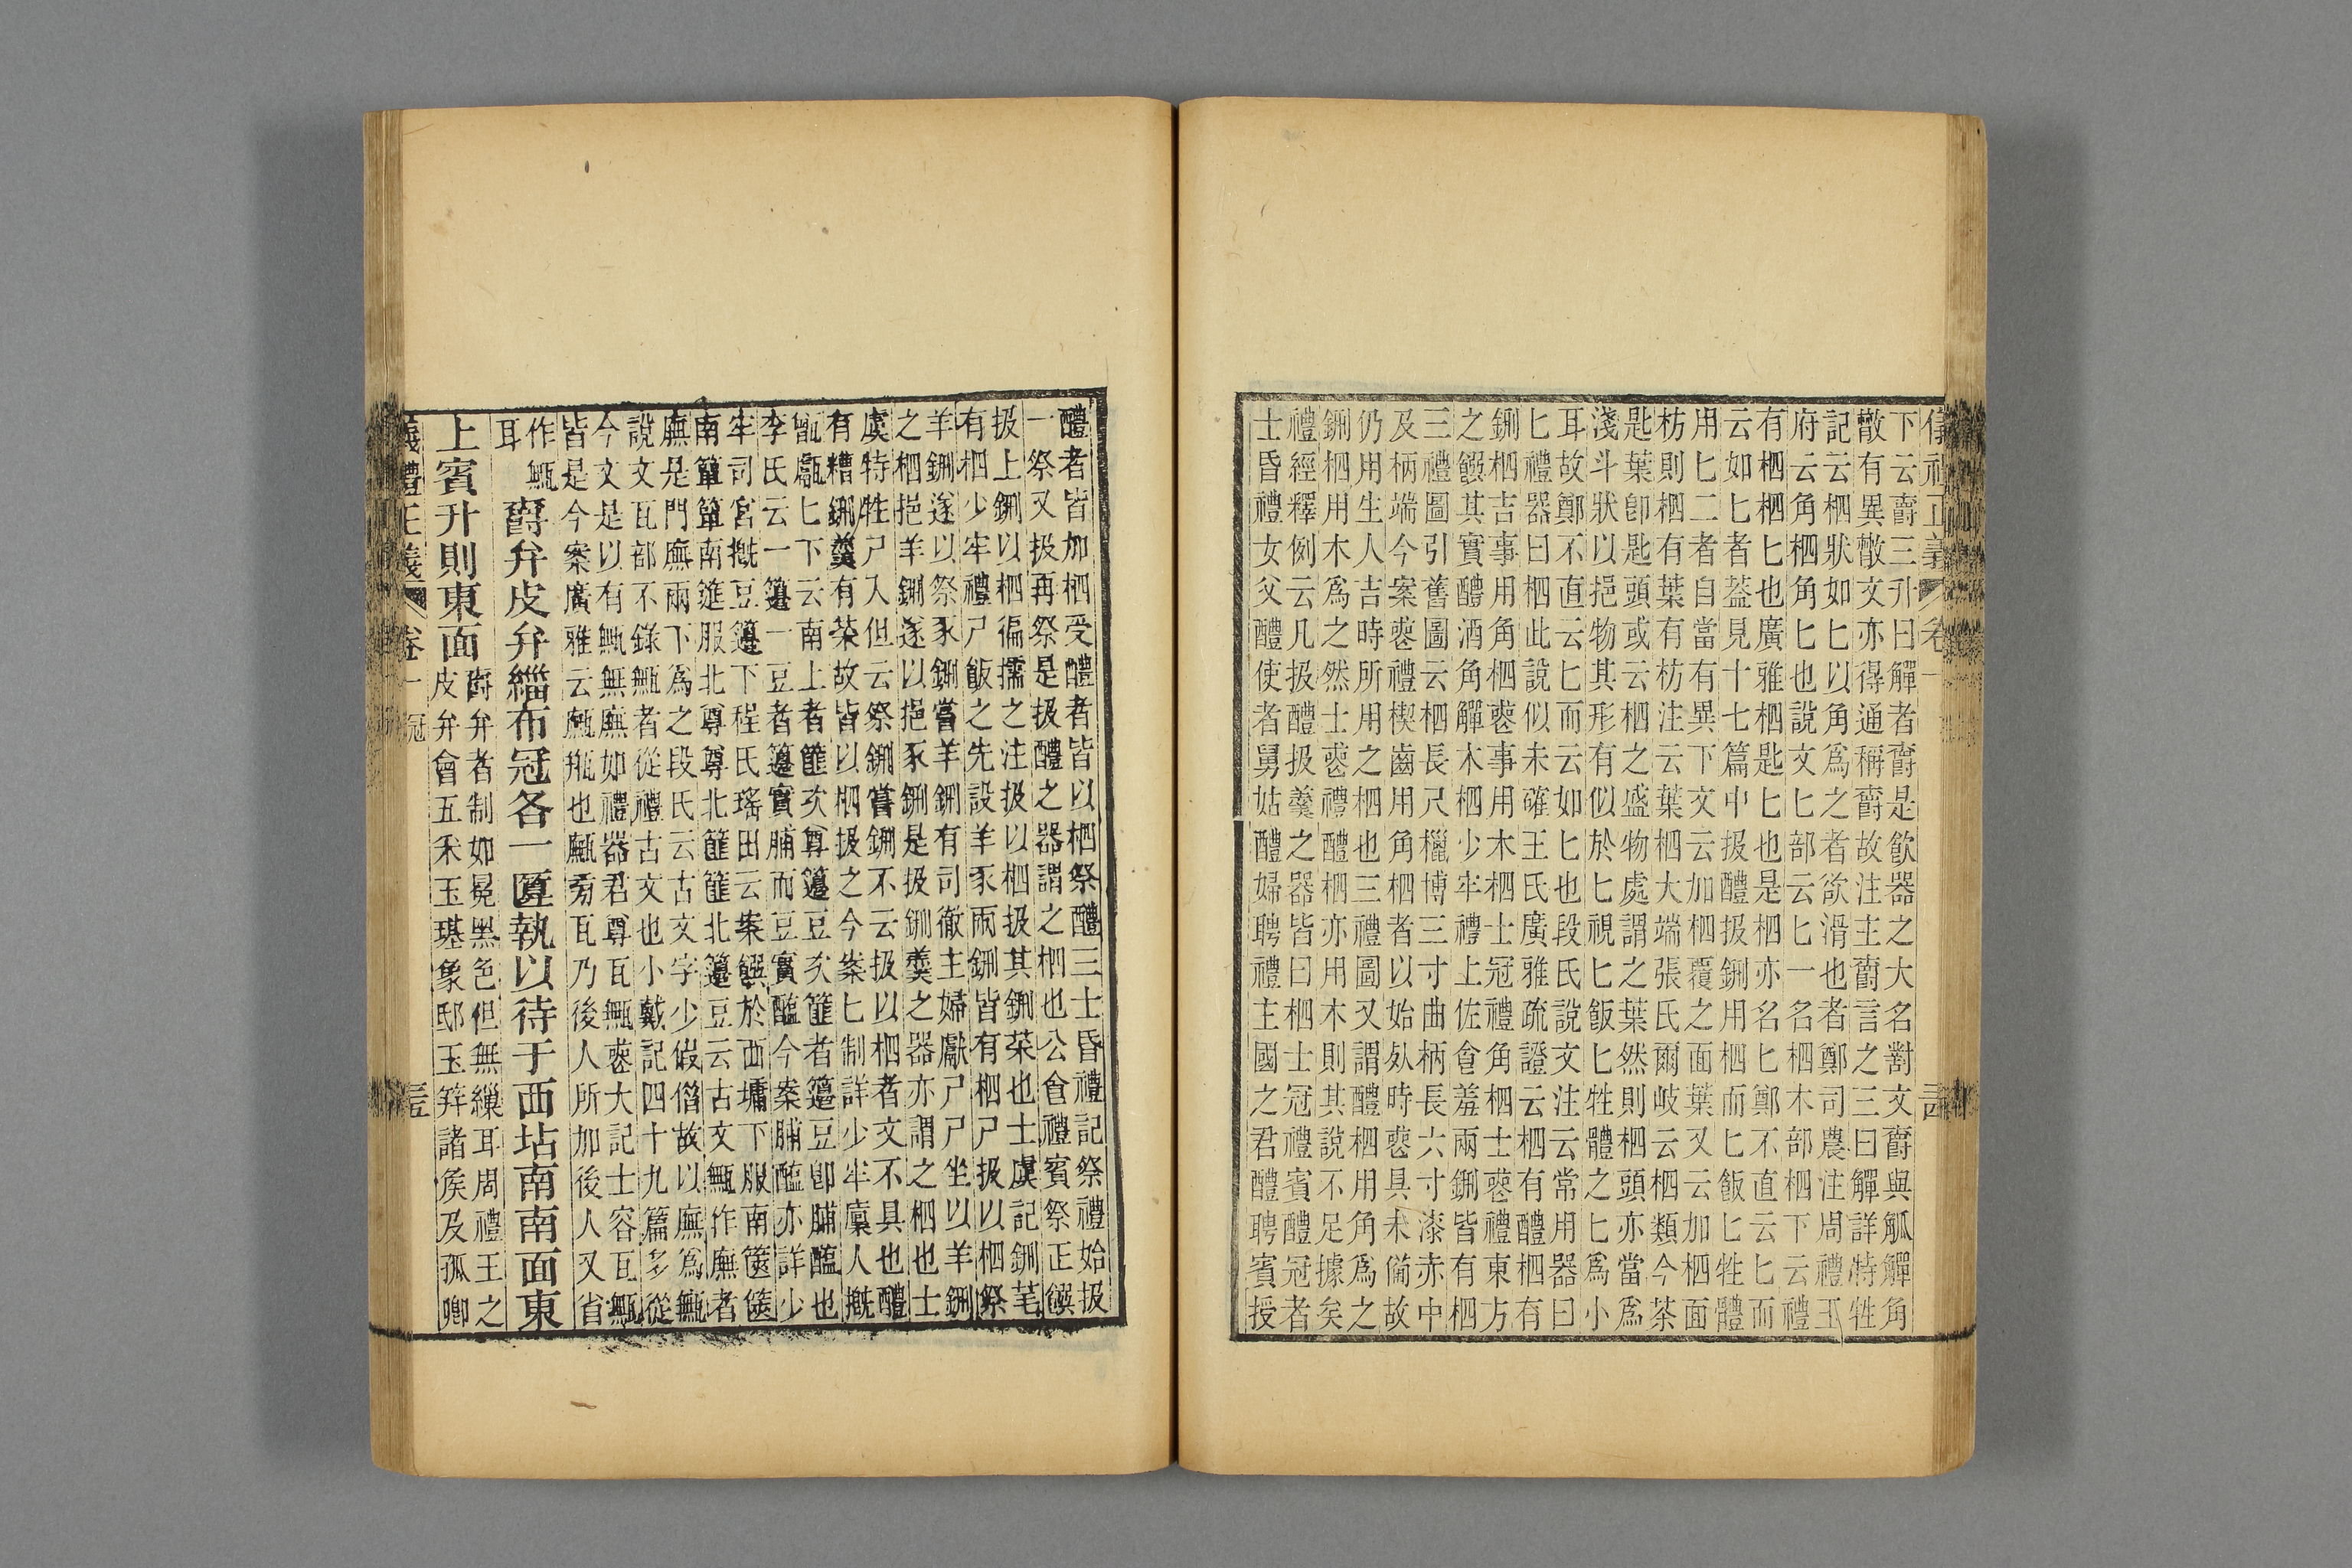 下云爵三升曰觶者爵是飲器之大名對文爵與觚觶角
散有異散文亦得通稱爵故注主爵言之三曰觶詳特牲
記云柶狀如匕以角爲之者欲滑也者鄭司農注周禮玉
府云角柶角匕也說文匕部云匕一名柶木部柶下云禮
有柶柶匕也廣雅柶匙匕也是柶亦名匕鄭不直云匕而
云如匕者蓋見十七篇中扱醴扱鉶用柶而匕飯匕牲體
用匕二者自當有異下文云加柶覆之面葉又云加柶面
枋則柶有葉有枋注云葉柶大端張氏爾岐云柶類今茶
匙葉卽匙頭或云柶之盛物處謂之葉然則柶頭亦當爲
淺斗狀以挹物其形有似於匕視匕飯匕牲體之匕爲小
耳故鄭不直云匕而云如匕也段氏說文注云常用器曰
匕禮器曰柶此說似未確王氏廣雅疏證云柶有醴柶有
鉶柶吉事用角柶喪事用木柶士冠禮角柶士喪禮東方
之饌其實醴酒角觶木柶少牢禮上佐食羞兩鉶皆有柶
三禮圖引舊圖云柶長尺㯿博三寸曲柄長六寸漆赤中
及柄端今案喪禮楔齒用角柶者以始死時喪具未備故
仍用生人吉時所用之柶也三禮圖又謂醴柶用角爲之
鉶柶用木爲之然士喪禮醴柶亦用木則其說不足據矣
禮經釋例云凡扱醴扱羹之器皆曰柶士冠禮賓醴冠者
士昏禮女父醴使者舅姑醴婦聘禮主國之君醴聘賓授
醴者皆加柶受醴者皆以柶祭醴三士昏禮記祭禮始扱
一祭又扱再祭是扱醴之器謂之柶也公食禮賓祭正饌
扱上鉶以柶徧擩之注扱以柶扱其鉶菜也士虞記鉶芼
有柶少牢禮尸飯之先設羊豕兩鉶皆有柶尸扱以柶祭
羊鉶遂以祭豕鉶嘗羊鉶有司徹主婦獻尸尸坐以羊鉶
之柶挹羊鉶遂以挹豕鉶是扱鉶羹之器亦謂之柶也士
虞特牲尸入但云祭鉶嘗鉶不云扱以柶者文不具也醴
有糟鉶羹有菜故皆以柶扱之今案匕制詳少牢廩人摡
甑甗匕下云南上者篚次尊籩豆次篚者籩豆卽脯醢也
李氏云一籩一豆者籩實脯而豆實醢今案脯醢亦詳少
牢司宮摡豆籩下程氏瑤田云案饌於西墉下服南篋篋
南簞簞南筵服北尊尊北篚篚北籩豆云古文甒作廡者
廡是門廡兩下爲之段氏云古文字少假借故以廡爲甒
說文瓦部不錄甒者從禮古文也小戴記四十九篇多從
今文是以有甒無廡如禮器君尊瓦甒喪大記士容瓦甒
皆是今案廣雅云甒瓶也甒旁瓦乃後人所加後人又省
作甒
耳
爵弁皮弁緇布冠各一匴執以待于西坫南南面東
上賓升則東面
爵弁者制如冕黑色但無繅耳周禮王之
皮弁會五采玉璂象邸玉笄諸侯及孤卿
儀禮正義 卷一 冠